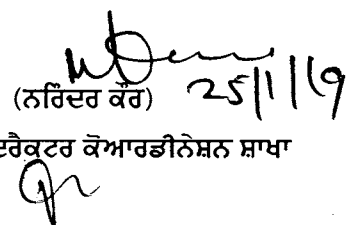 (ਨਰਿੰਦਰ ਕੌਰ) 25/1/19
ਕੋਆਰਡੀਨੇਸ਼ਨ ਸ਼ਾਖਾ